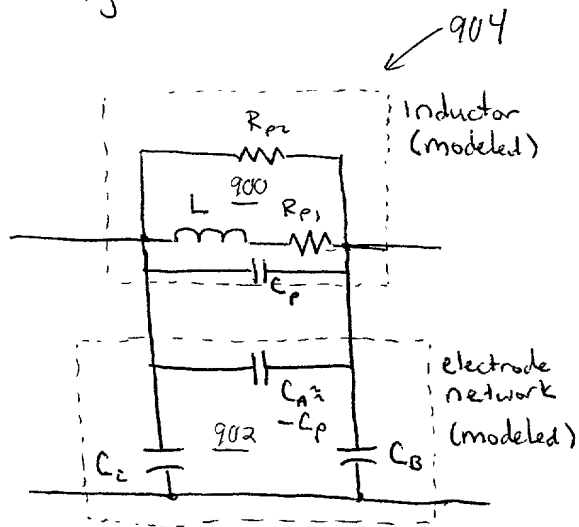 904
Inductor
(modeled)
Rp2
900
L
Rp1
Cp
electrode
network
(modeled)
CA ≈
-Cp
902
CB